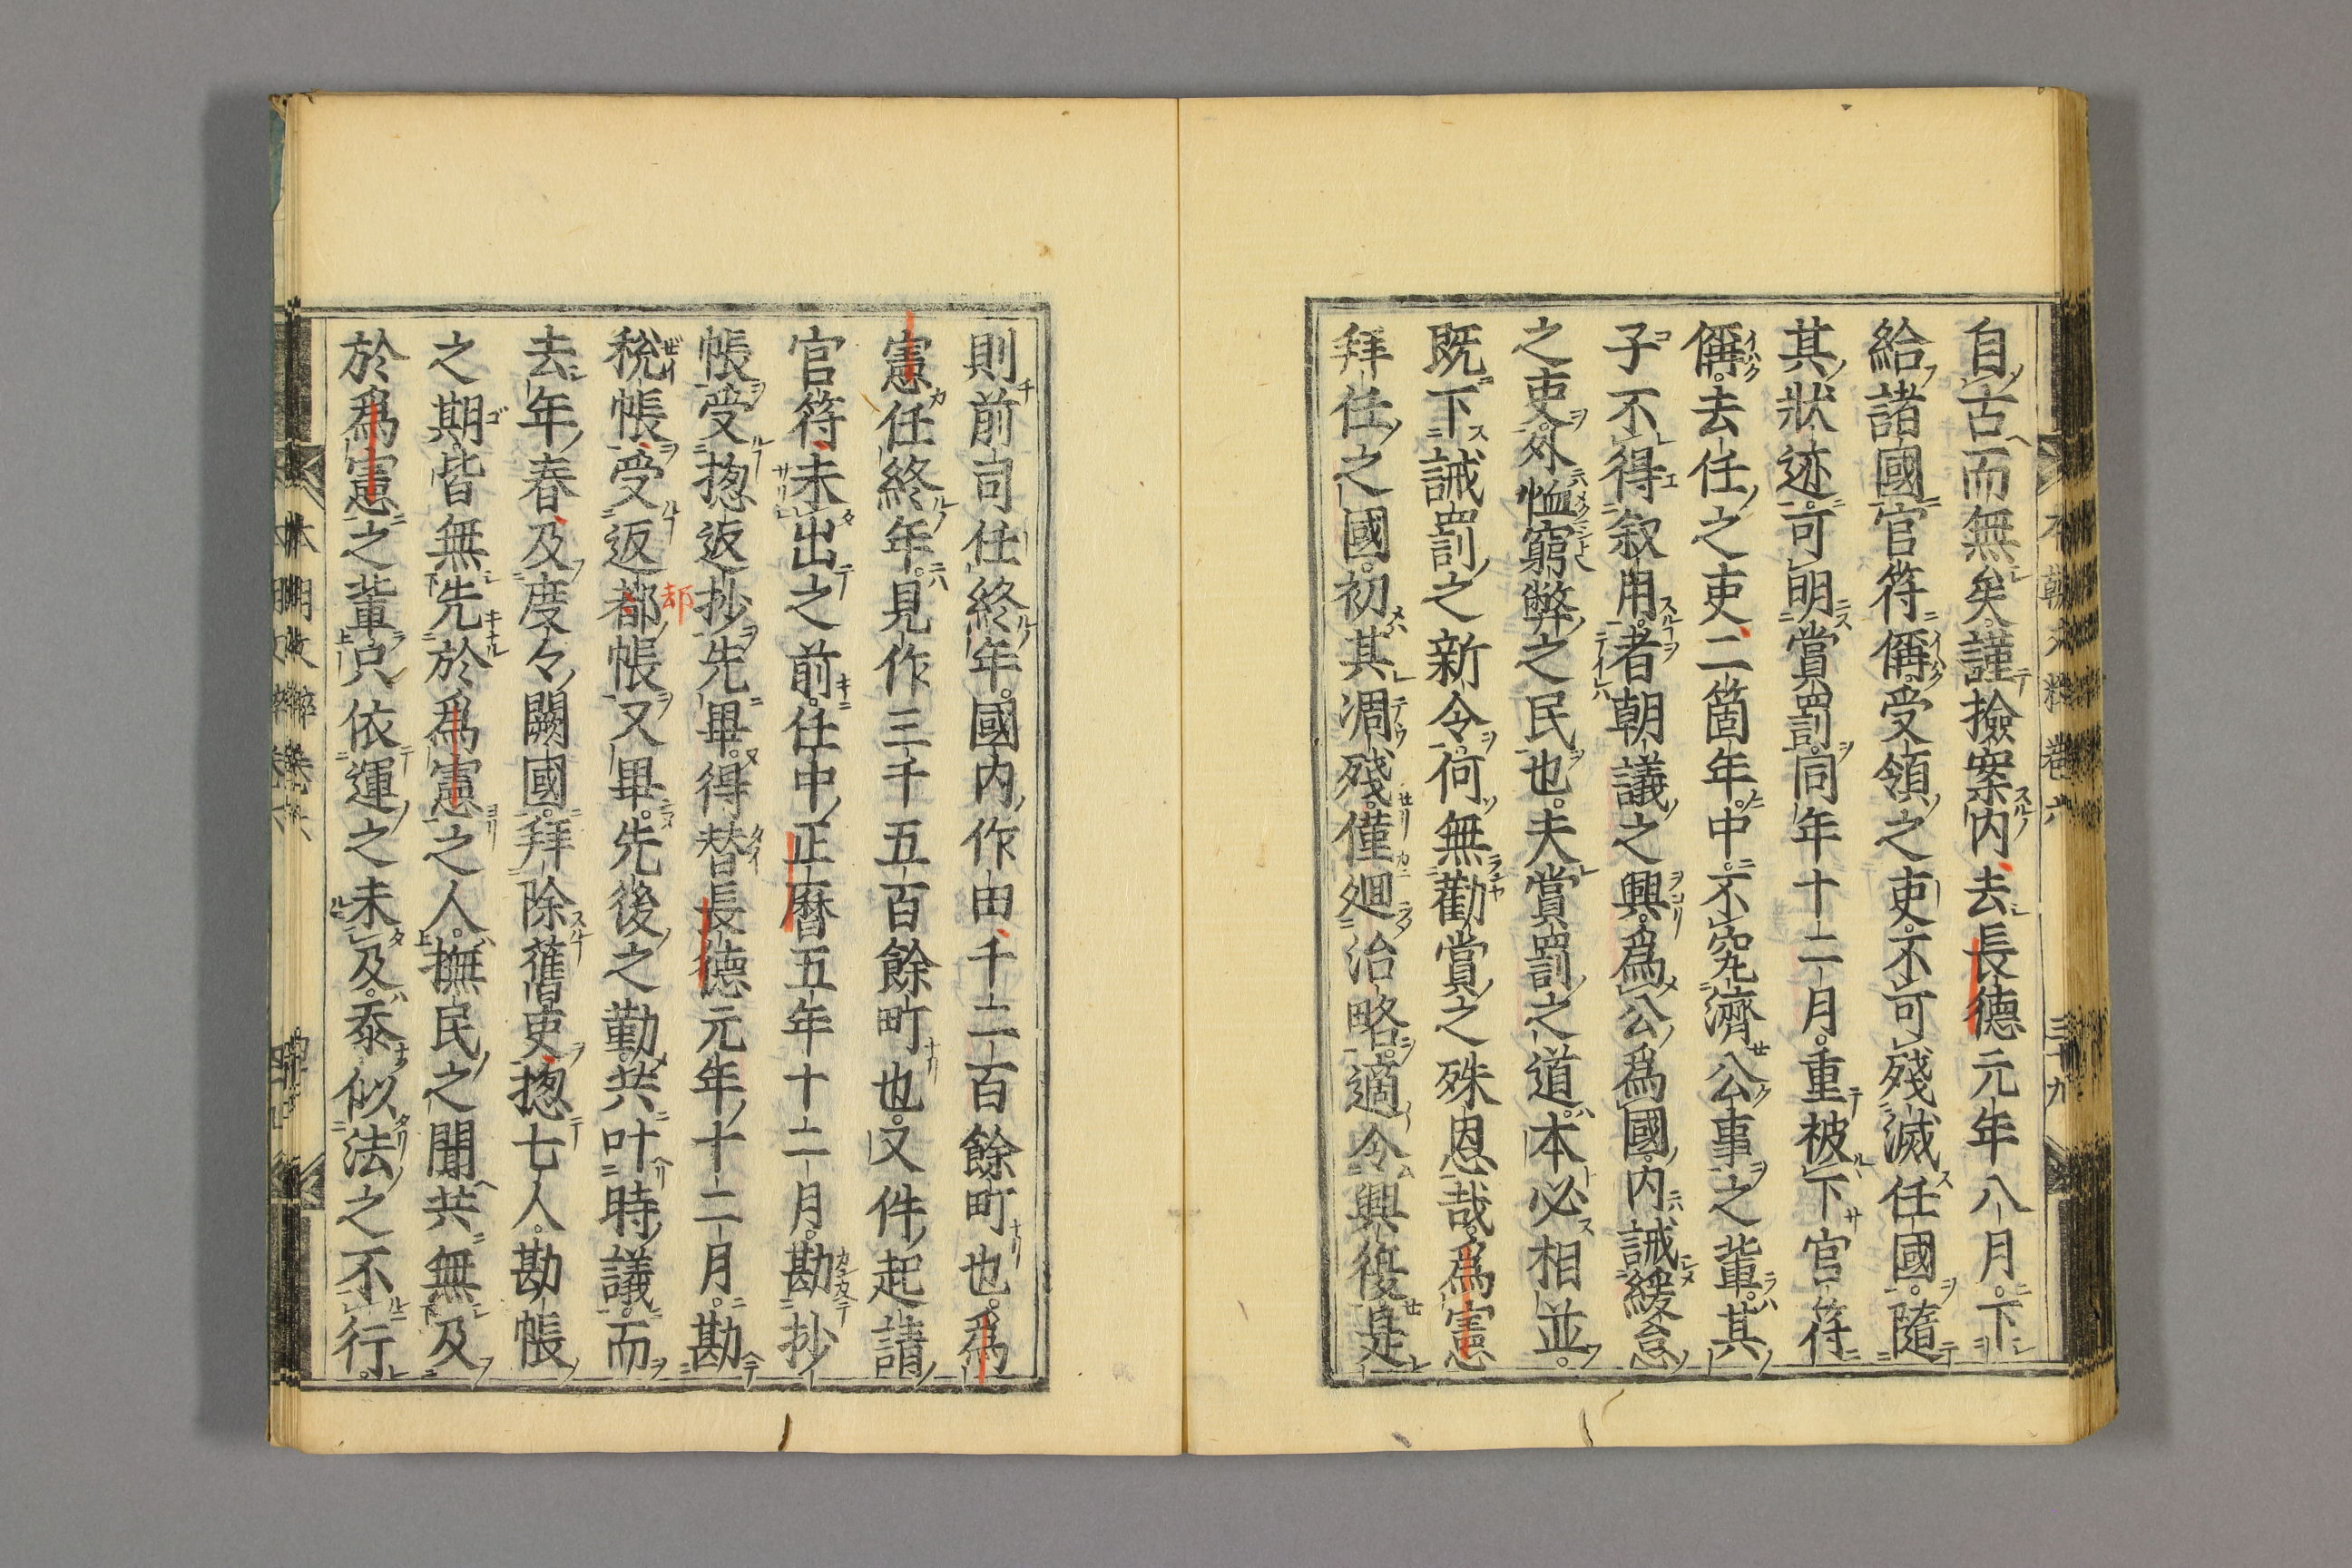 自古而無矣。謹撿案内去長德元年八月。下
給諸國官符偁。受領之吏。不可殘滅任國。隨
其狀迹。可明賞罰。同年十二月。重被下官符
偁。去任之吏二箇年中。不究濟公事之輩。其
子不得叙用。者朝議之興。爲公爲國。内誡緩怠
之吏。外恤窮弊之民也。夫賞罰之道。本必相並。
既下誡罰之新令。何無勸賞之殊恩哉。爲憲
拜任之國。初其凋殘。僅廻治略。適令興復。是
則前司任終年。國内作田千二百餘町也。爲
憲任終年。見作三千五百餘町也。又件起請
官符未出之前。任中正曆五年十二月。勘抄
帳受揔返抄先畢。得替長德元年十二月。勘
稅帳受返都帳又畢。先後之勤。共叶時議。而
去年春及度々闕國。拜除舊吏揔七人。勘帳
之期。皆無先於爲憲之人。撫民之聞共無及
於爲憲之輩。只依運之未及。泰似法之不行。
却
本朝文粹卷六
三十九